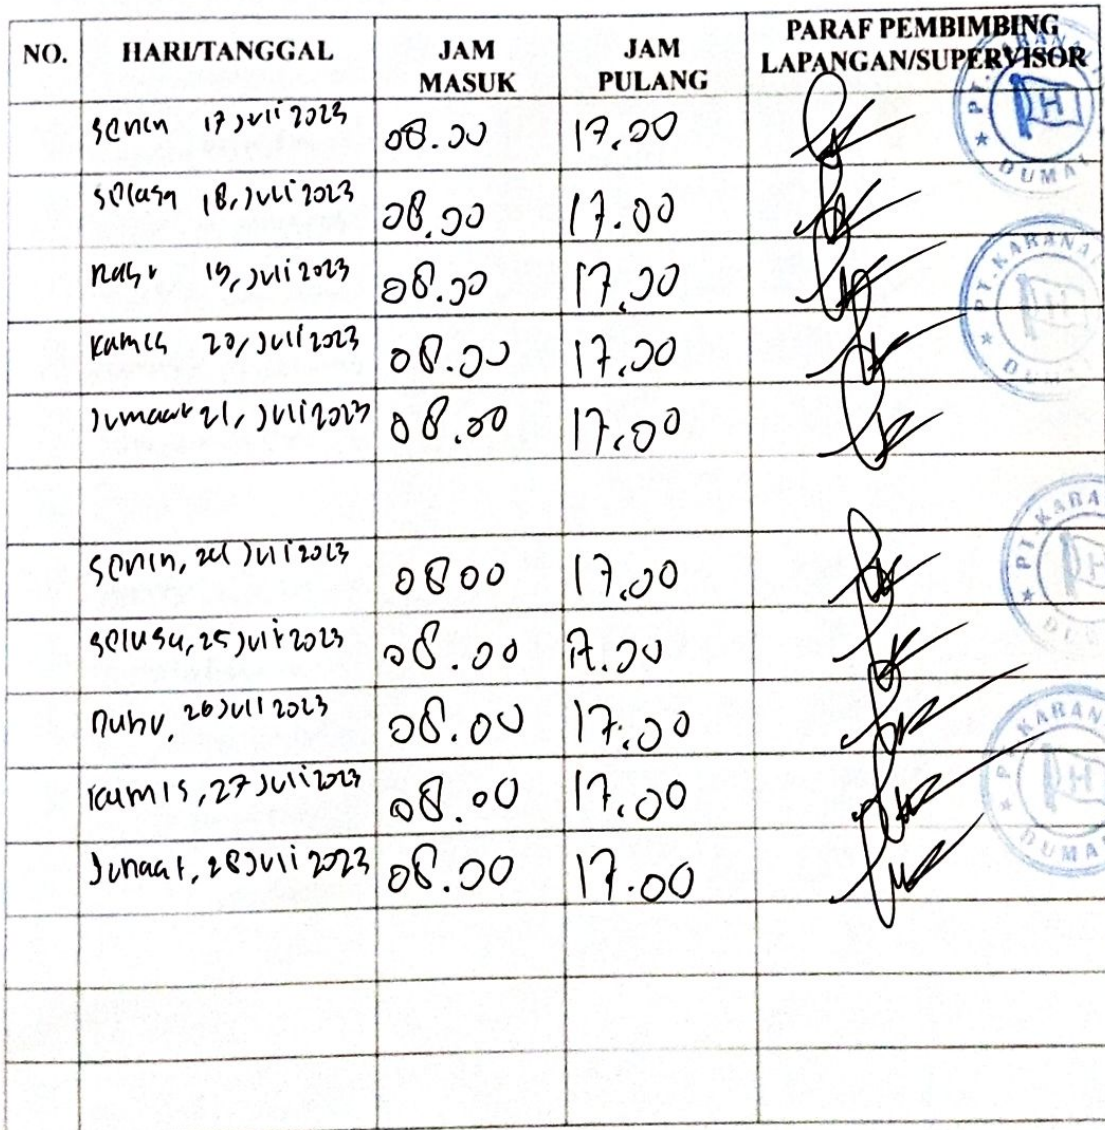 NO. HARI/TANGGAL JAM MASUK JAM PULANG PARAF PEMBIMBING LAPANGAN/SUPERVISOR
Senin 17 Juli 2023 08.00 17.00
Selasa 18, Juli 2023 08.00 17.00
Rabu 19, Juli 2023 08.00 17.00
Kamis 20, Juli 2023 08.00 17.00
Jumaat 21, Juli 2023 08.00 17.00
Senin, 24 Juli 2023 0800 17.00
Selasa, 25 Juli 2023 08.00 17.00
Rabu, 26 Juli 2023 08.00 17.00
Kamis, 27 Juli 2023 08.00 17.00
Jumaat, 28 Juli 2023 08.00 17.00
PT. KARANA
H
DUMAI
PT. KARANA
H
DUMAI
PT. KARANA
PT. KARANA
H
DUMAI